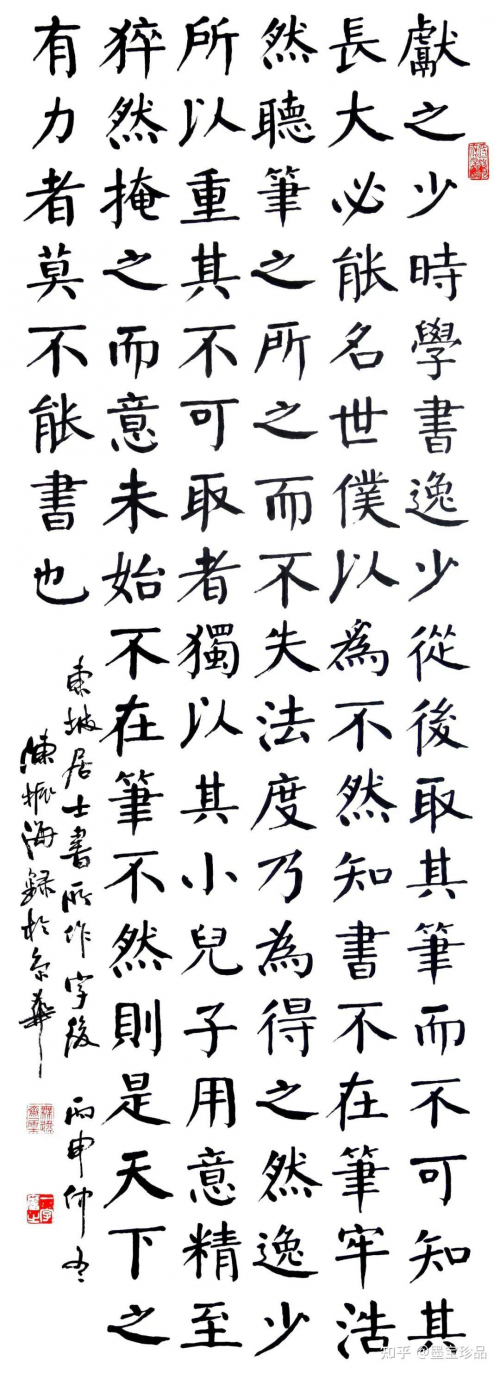 獻之少時學書逸少從後取其筆而不可知其
長大必能名世僕以爲不然知書不在筆牢浩
然聽筆之所之而不失法度乃為得之然逸少
所以重其不可取者獨以其小兒子用意精至
猝然掩之而意未始不在筆不然則是天下之
有力者莫不能書也
東坡居士書所作字後 丙申仲冬
陳振海錄於京華
知乎 @墨宝珍品